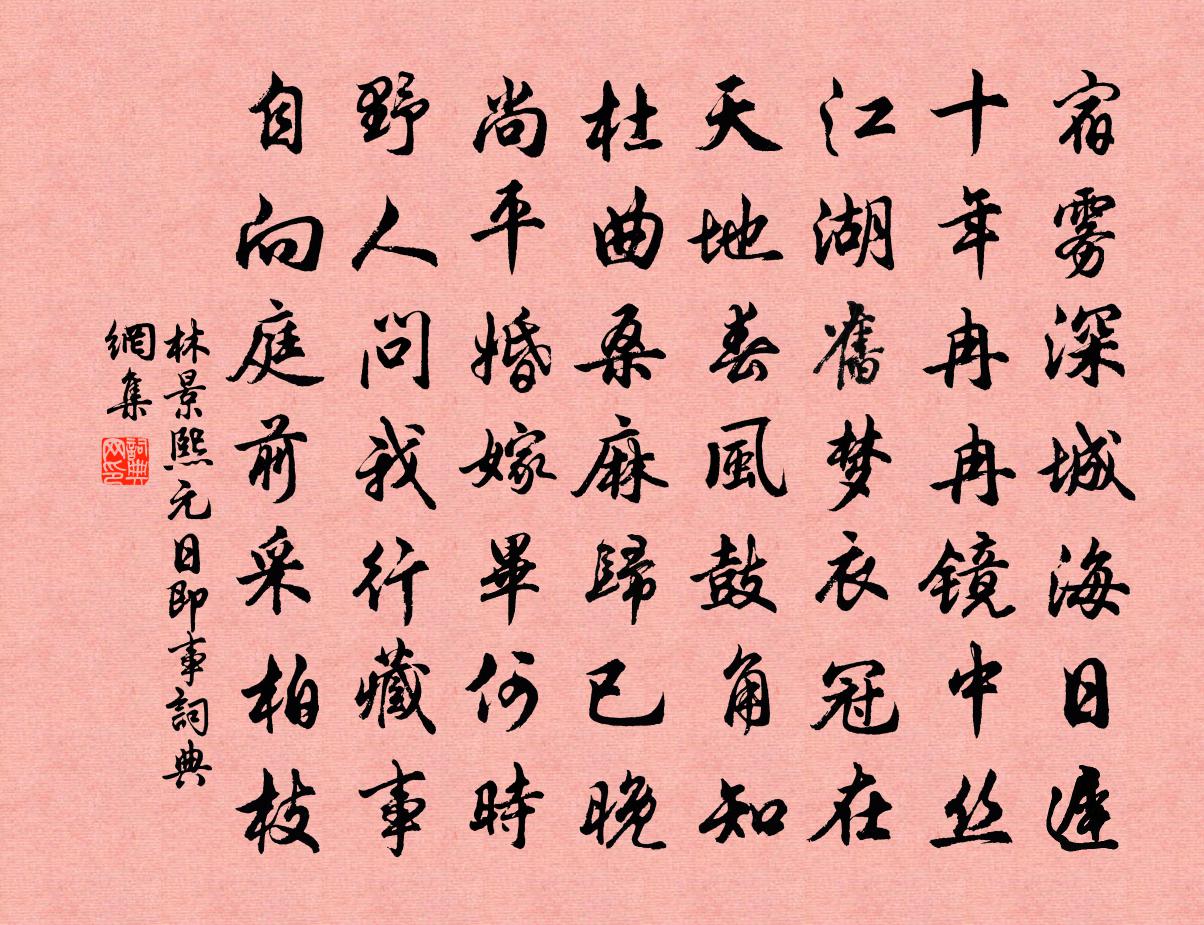 宿雾深城海日遲
十年冉冉鏡中丝
江湖舊梦衣冠在
天地春風鼓角知
杜曲桑麻歸已晚
尚平婚嫁畢何時
野人问我行藏事
自向庭前采柏枝
林景熙元日即事詞典
網集
詞典
网印